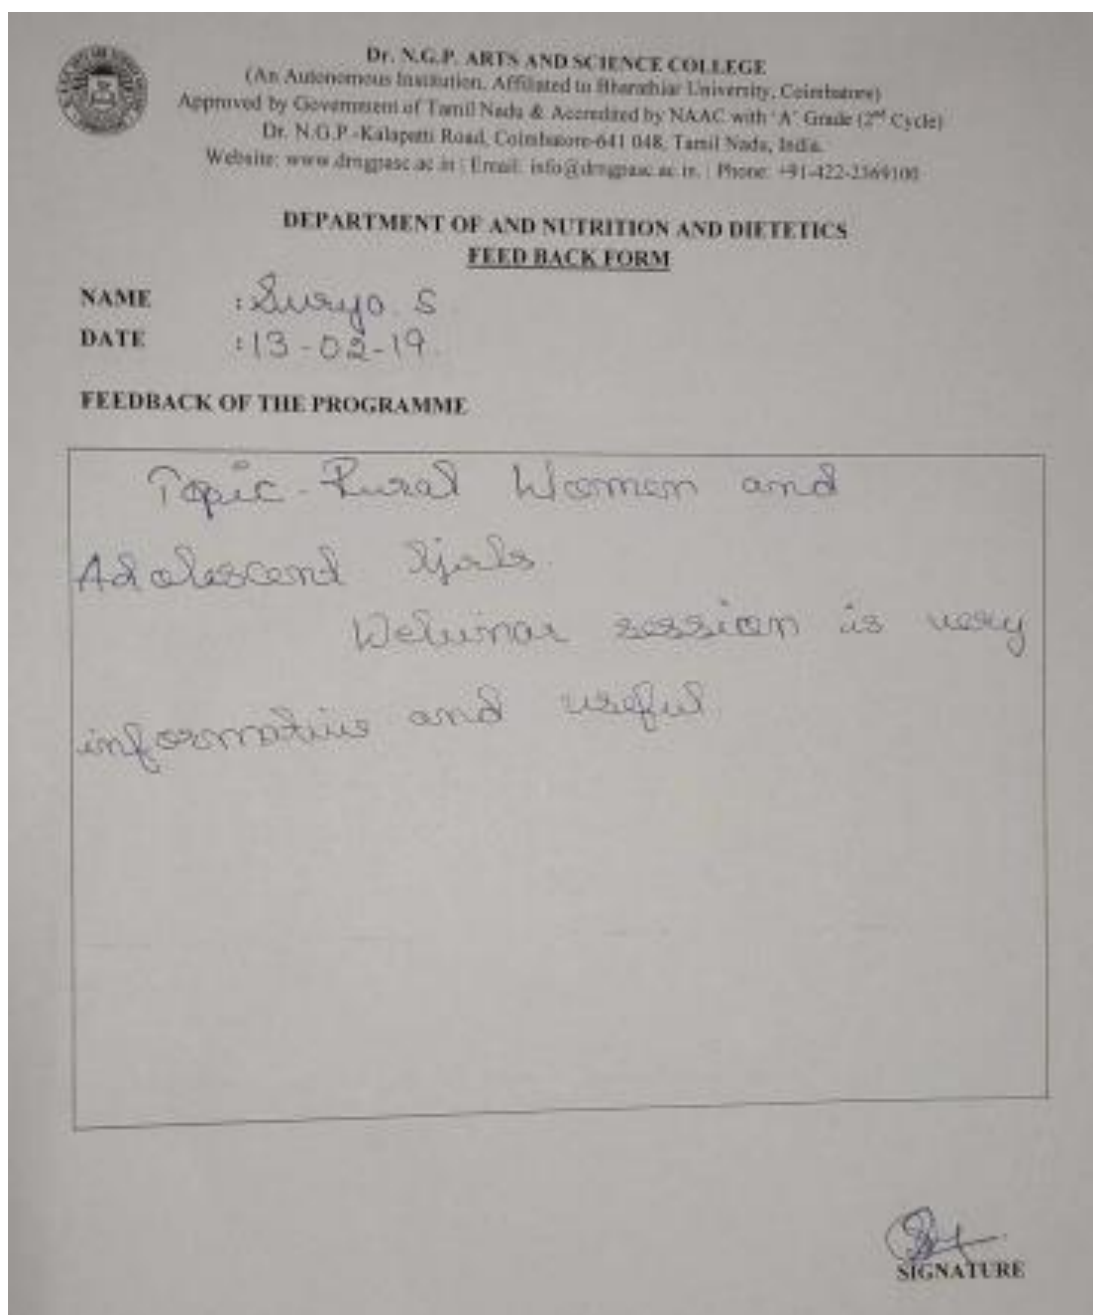 Dr. N.G.P. ARTS AND SCIENCE COLLEGE
(An Autonomous Institution, Affiliated to Bharathiar University, Coimbatore)
Approved by Government of Tamil Nadu & Accredited by NAAC with 'A' Grade (2nd Cycle)
Dr. N.G.P.-Kalapatti Road, Coimbatore-641 048, Tamil Nadu, India.
Website: www.drngpasc.ac.in | Email: info@drngpasc.ac.in. | Phone: +91-422-2369100
DEPARTMENT OF AND NUTRITION AND DIETETICS
FEED BACK FORM
NAME : Surya. S
DATE : 13-02-19.
FEEDBACK OF THE PROGRAMME
Topic - Rural Women and
Adolescend Girls.
Webinar session is very
informative and useful.
SIGNATURE